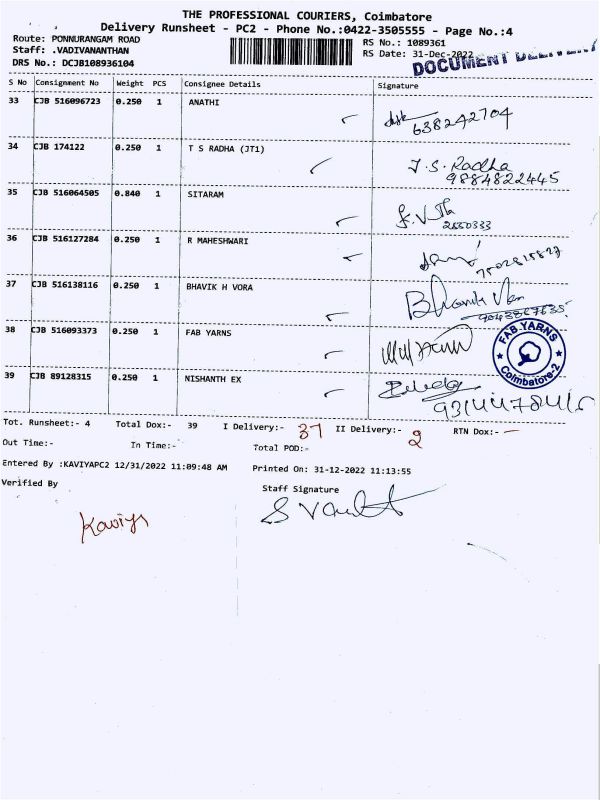 THE PROFESSIONAL COURIERS, Coimbatore
Delivery Runsheet - PC2 - Phone No.:0422-3505555 - Page No.:4
Route: PONNURANGAM ROAD
RS No.: 1089361
Staff: .VADIVANANTHAN
RS Date: 31-Dec-2022
DRS No.: DCJB108936104
DOCUMENT DELIVERY
S No Consignment No Weight PCS Consignee Details Signature
33 CJB 516096723 0.250 1 ANATHI
638242704
34 CJB 174122 0.250 1 T S RADHA (JT1) T.S. Radha
9884822445
35 CJB 516064505 0.840 1 SITARAM
2550333
36 CJB 516127284 0.250 1 R MAHESHWARI
37 CJB 516138116 0.250 1 BHAVIK H VORA Bhavik
38 CJB 516093373 0.250 1 FAB YARNS
FAB YARNS
Coimbatore-2
39 CJB 89128315 0.250 1 NISHANTH EX
Tot. Runsheet:- 4 Total Dox:- 39 I Delivery:- 37 II Delivery:- 2 RTN Dox:- -
Out Time:- In Time:- Total POD:-
Entered By :KAVIYAPC2 12/31/2022 11:09:48 AM Printed On: 31-12-2022 11:13:55
Verified By Staff Signature
Kaviya